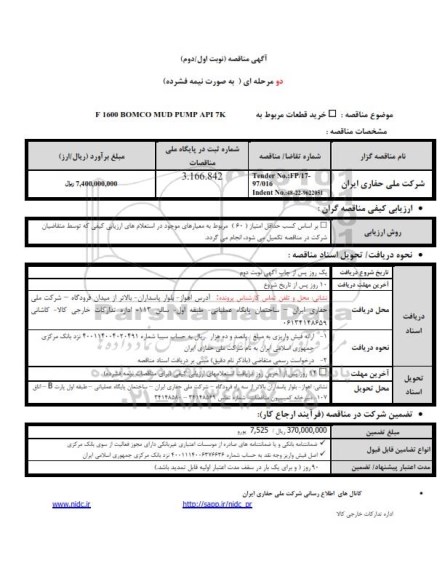 آگهی مناقصه (نوبت اول/دوم)
دو مرحله ای ( به صورت نیمه فشرده)
موضوع مناقصه : خرید قطعات مربوط به F 1600 BOMCO MUD PUMP API 7K
مشخصات مناقصه :
نام مناقصه گزار
شماره تقاضا/ مناقصه
شماره ثبت در پایگاه ملی مناقصات
مبلغ برآورد (ریال/ارز)
شرکت ملی حفاری ایران
Tender No.:FP/17-97/016
Indent No.:48-22-9622051
3.166.842
7,400,000,000 ریال
ارزیابی کیفی مناقصه گران :
روش ارزیابی
بر اساس کسب حداقل امتیاز (۶۰) مربوط به معیارهای موجود در استعلام های ارزیابی کیفی که توسط متقاضیان شرکت در مناقصه تکمیل می شود، انجام می گردد.
نحوه دریافت/ تحویل اسناد مناقصه :
دریافت اسناد
تاریخ شروع دریافت
یک روز پس از چاپ آگهی نوبت دوم
آخرین مهلت دریافت
۱۰ روز پس از تاریخ شروع
محل دریافت
نشانی محل و تلفن تماس کارشناس پرونده: آدرس اهواز- بلوار پاسداران- بالاتر از میدان فرودگاه – شرکت ملی حفاری ایران – ساختمان پایگاه عملیاتی- طبقه اول- سالن ۱۱۳- اداره تدارکات خارجی کالا- کاشانی ۰۶۱۳۴۱۴۸۶۵۹
نحوه دریافت
۱- ارائه فیش واریزی به مبلغ
جمهوری اسلامی ایران به نام شرکت ملی حفاری ایران
۲- درخواست رسمی متقاضی (باذکر نام دقیق) مبنی بر دریافت اسناد مناقصه
تحویل اسناد
آخرین مهلت
۱۴ روز پس از آخرین روز دریافت اسناد
محل تحویل
نشانی: اهواز- بلوار پاسداران- بالاتر از سه راه فرودگاه – شرکت ملی حفاری ایران – ساختمان پایگاه عملیاتی – طبقه اول پارت B – اتاق ۱۰۷- دبیرخانه کمیسیون مناقصات
تضمین شرکت در مناقصه (فرآیند ارجاع کار):
مبلغ تضمین
370,000,000 ریال / 7,525 یورو
انواع تضامین قابل قبول
ضمانتنامه بانکی و یا ضمانتنامه های صادره از موسسات اعتباری غیربانکی دارای مجوز فعالیت از سوی بانک مرکزی
اصل فیش واریز وجه نقد به حساب شماره ۴۰۰۱۱۱۴۰۰۶۳۷۶۶۳۶ نزد بانک مرکزی جمهوری اسلامی ایران
مدت اعتبار پیشنهاد/ تضمین
۹۰ روز ( و برای یک بار در سقف مدت اعتبار اولیه قابل تمدید باشد.)
کانال های اطلاع رسانی شرکت ملی حفاری ایران
http://sapp.ir/nidc_pr
www.nidc.ir
اداره تدارکات خارجی کالا